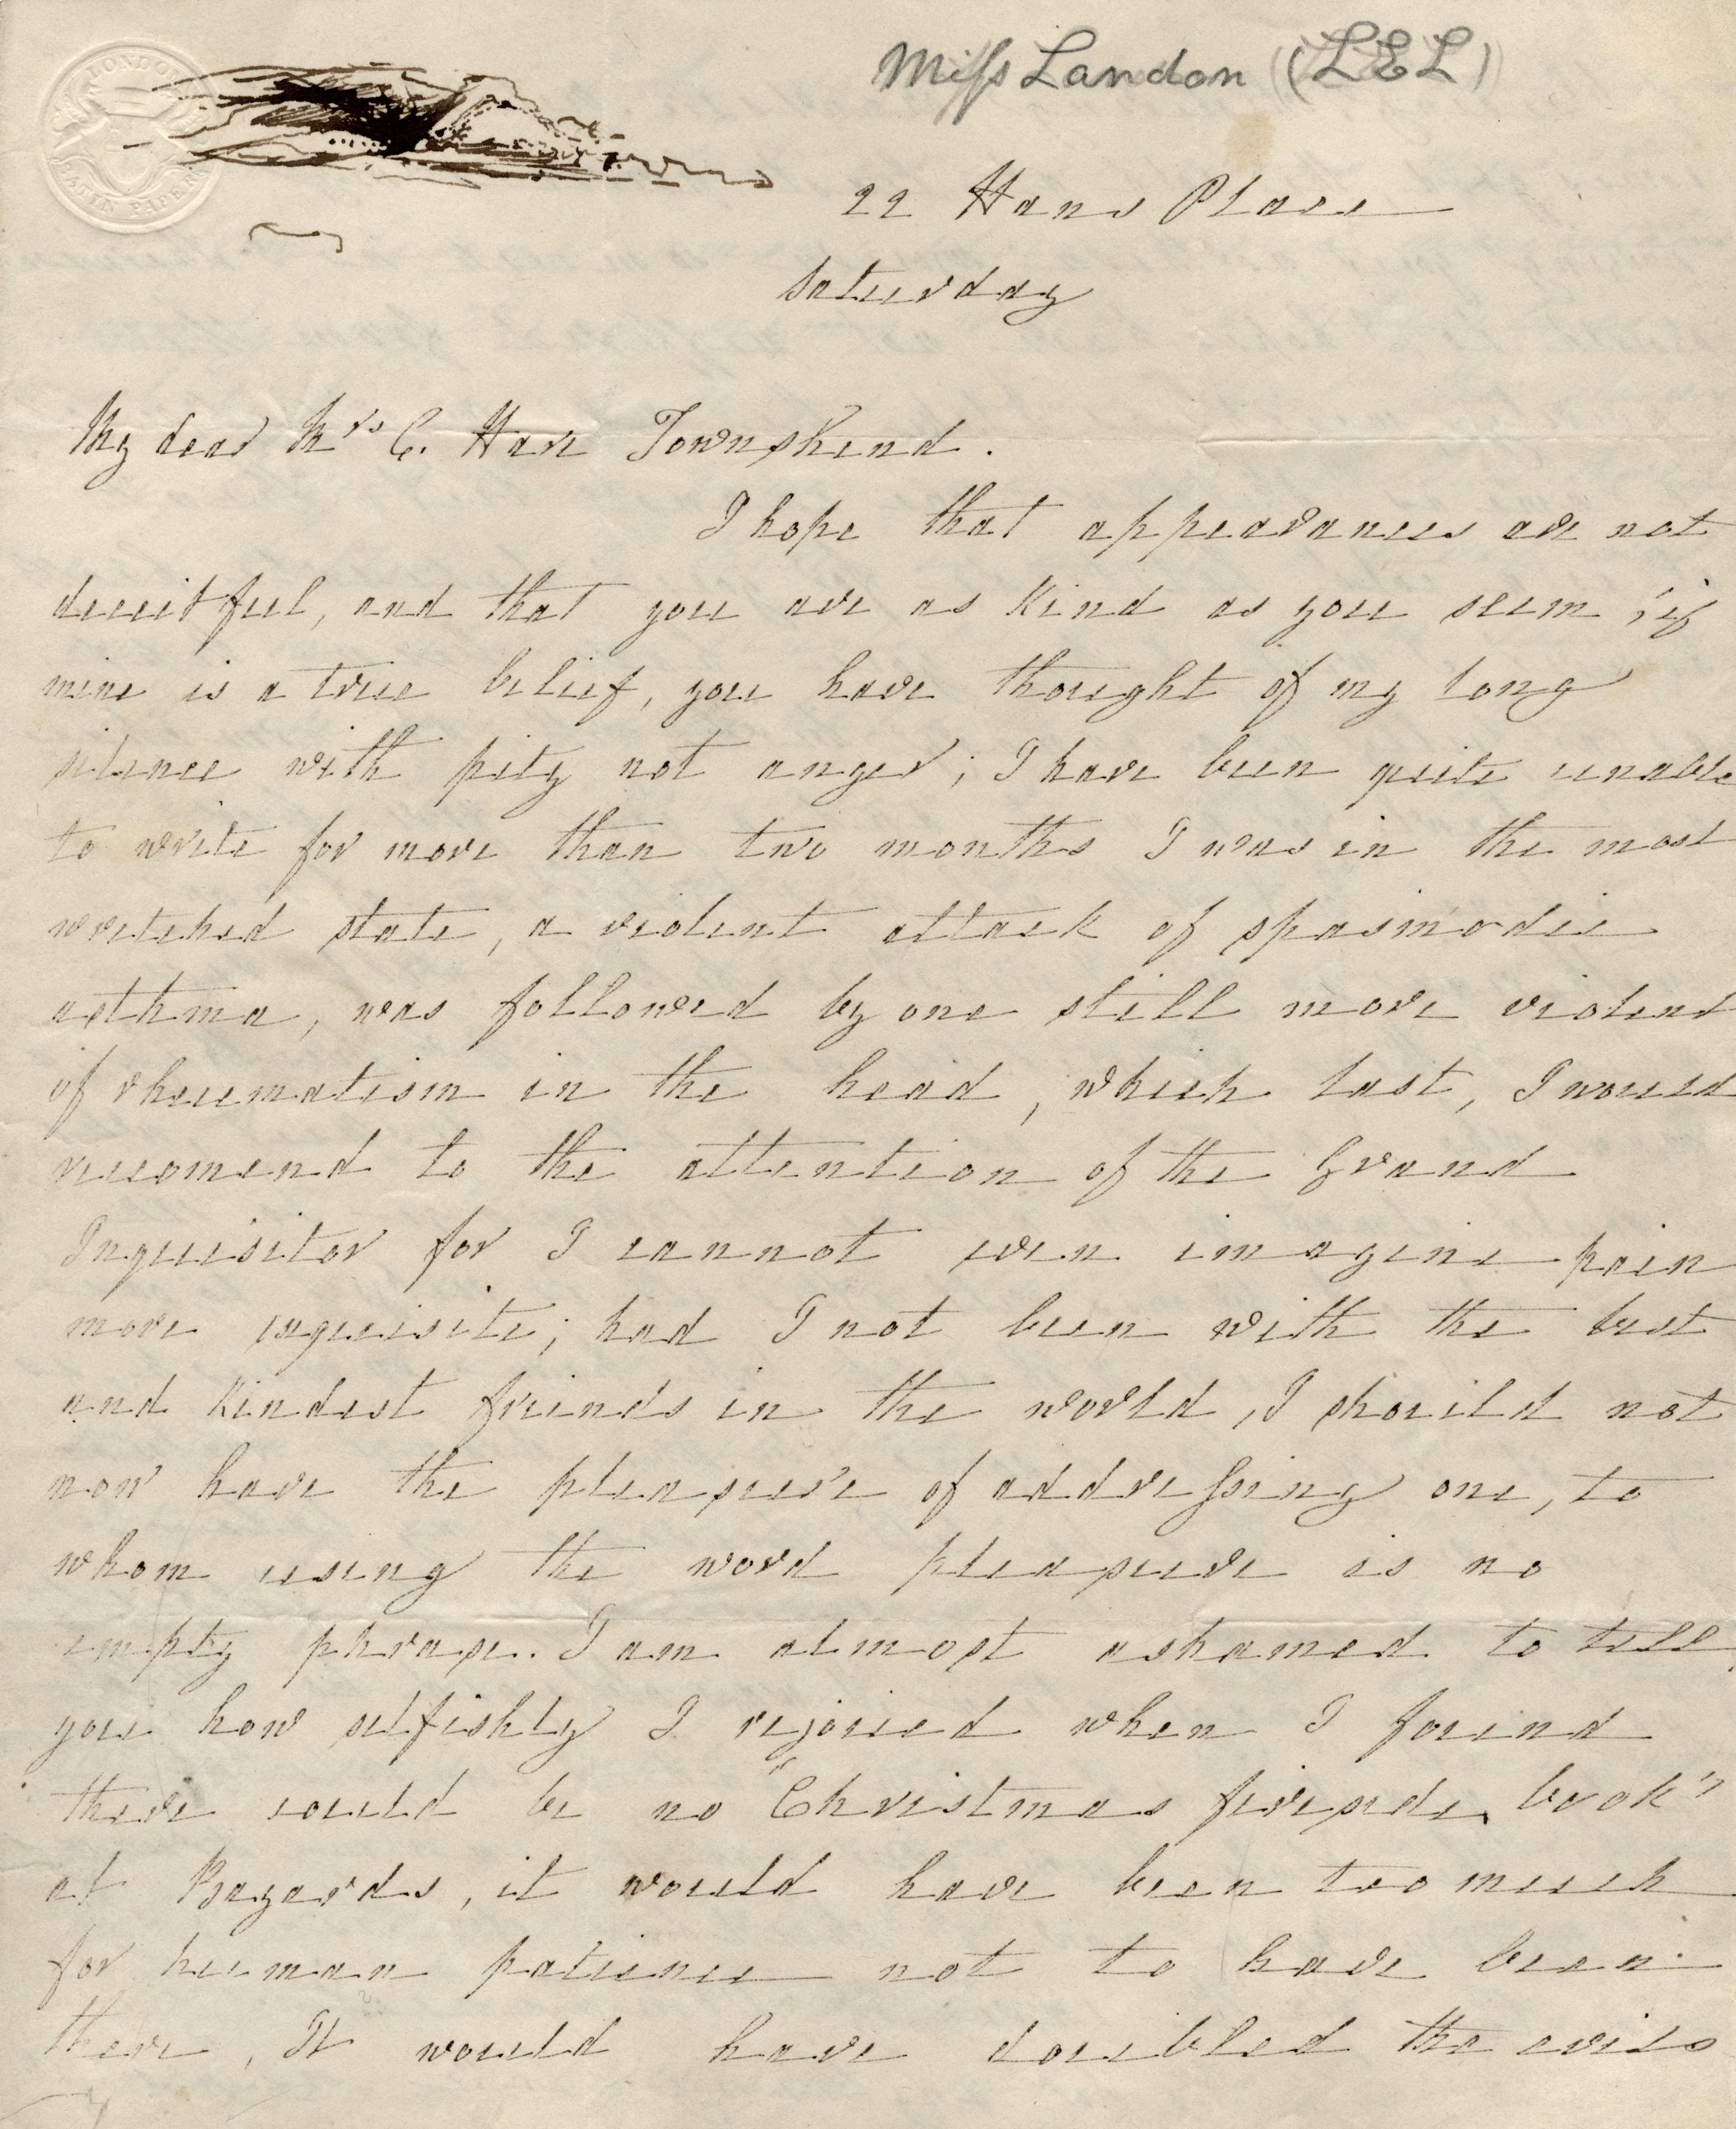 Miſs Landon (LEL)
LONDON
SATIN PAPER
22 Hans Place
Saturday
My dear Mrs C. Hare Townshend.
I hope that appearances are not
deceitful, and that you are as kind as you seem ; if
mine is a true belief, you have thought of my long
silence with pity not anger ; I have been quite unable
to write for more than two months I was in the most
wretched state, a violent attack of spasmodic
asthma, was followed by one still more violent
of rheumatism in the head, which last, I would
recomend to the attention of the Grand
Inquisitor for I cannot even imagine pain
more exquisite; had I not been with the best
and kindest friends in the world, I should not
now have the pleasure of addreſsing one, to
whom using the word pleasure is no
empty phrase. I am almost ashamed to tell
you how selfishly I rejoiced when I found
there could be no "Christmas fireside book"
at , it would have been too much
for human patience not to have been
there, It would have doubled the evils